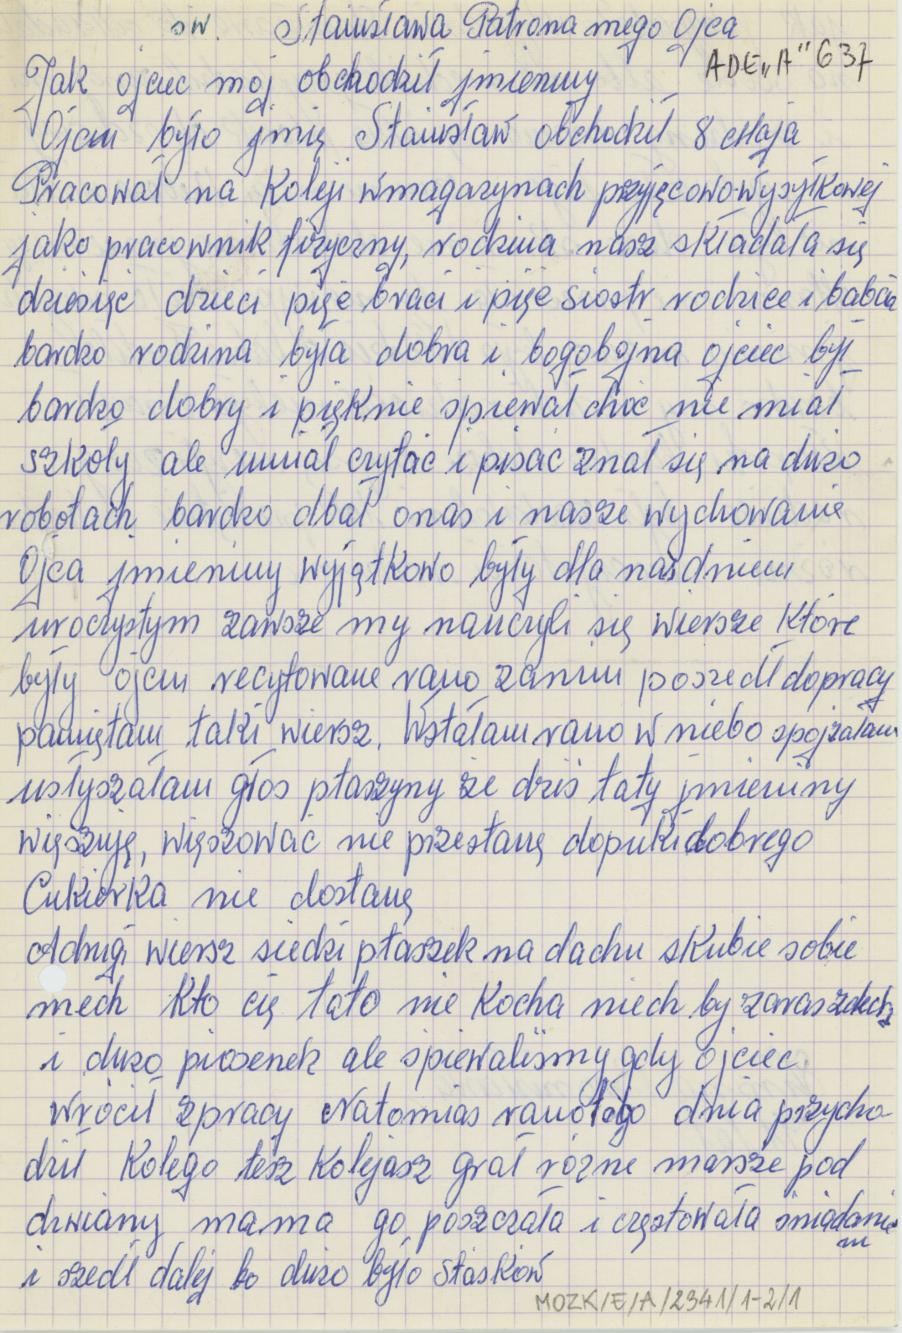 św. Stanisława Patrona mego Ojca
ADE „A" 637
Jak ojciec mój obchodził jmieniny
Ojcu było jmię Stanisław obchodził 8 Maja
Pracował na Koleji wmagazynach przyjęcowo-wysyłkowej
jako pracownik fizyczny, rodzina nasz składała się
dziesięc dzieci pięc braci i pięc siostr rodzice i babcia
bardzo rodzina była dobra i bogobojna ojciec był
bardzo dobry i pięknie spiewał choc nie miał
szkoły ale umiał czytać i pisać znał się na duzo
robotach bardzo dbał onas i nasze wychowanie
Ojca jmieniny wyjątkowo były dla nas dniem
uroczystym zawsze my nauczyli się wiersze Które
były ojcu recytowane rano zanim poszedł dopracy
pamiętam taki wiersz. Wstałam rano w niebo spojzałam
usłyszałam głos ptaszyny że dziś taty jmieniny
więszuję, więszować nie przestanę dopuki dobrego
Cukierka nie dostanę
A drugi wiersz siedzi ptaszek na dachu skubie sobie
mech Kto cię tato nie Kocha niech by zaras zdech
i duzo piosenek ale śpiewaliśmy gdy ojciec
wrócił zpracy Natomias rano tego dnia przycho
dził Kolego tesz Kolejasz grał rózne marsze pod
drzwiamy mama go poszczała i częstowała śniadanie
m
i szedł dalej bo duzo było Stasków
MOZK/E/A/2341/1-2/1